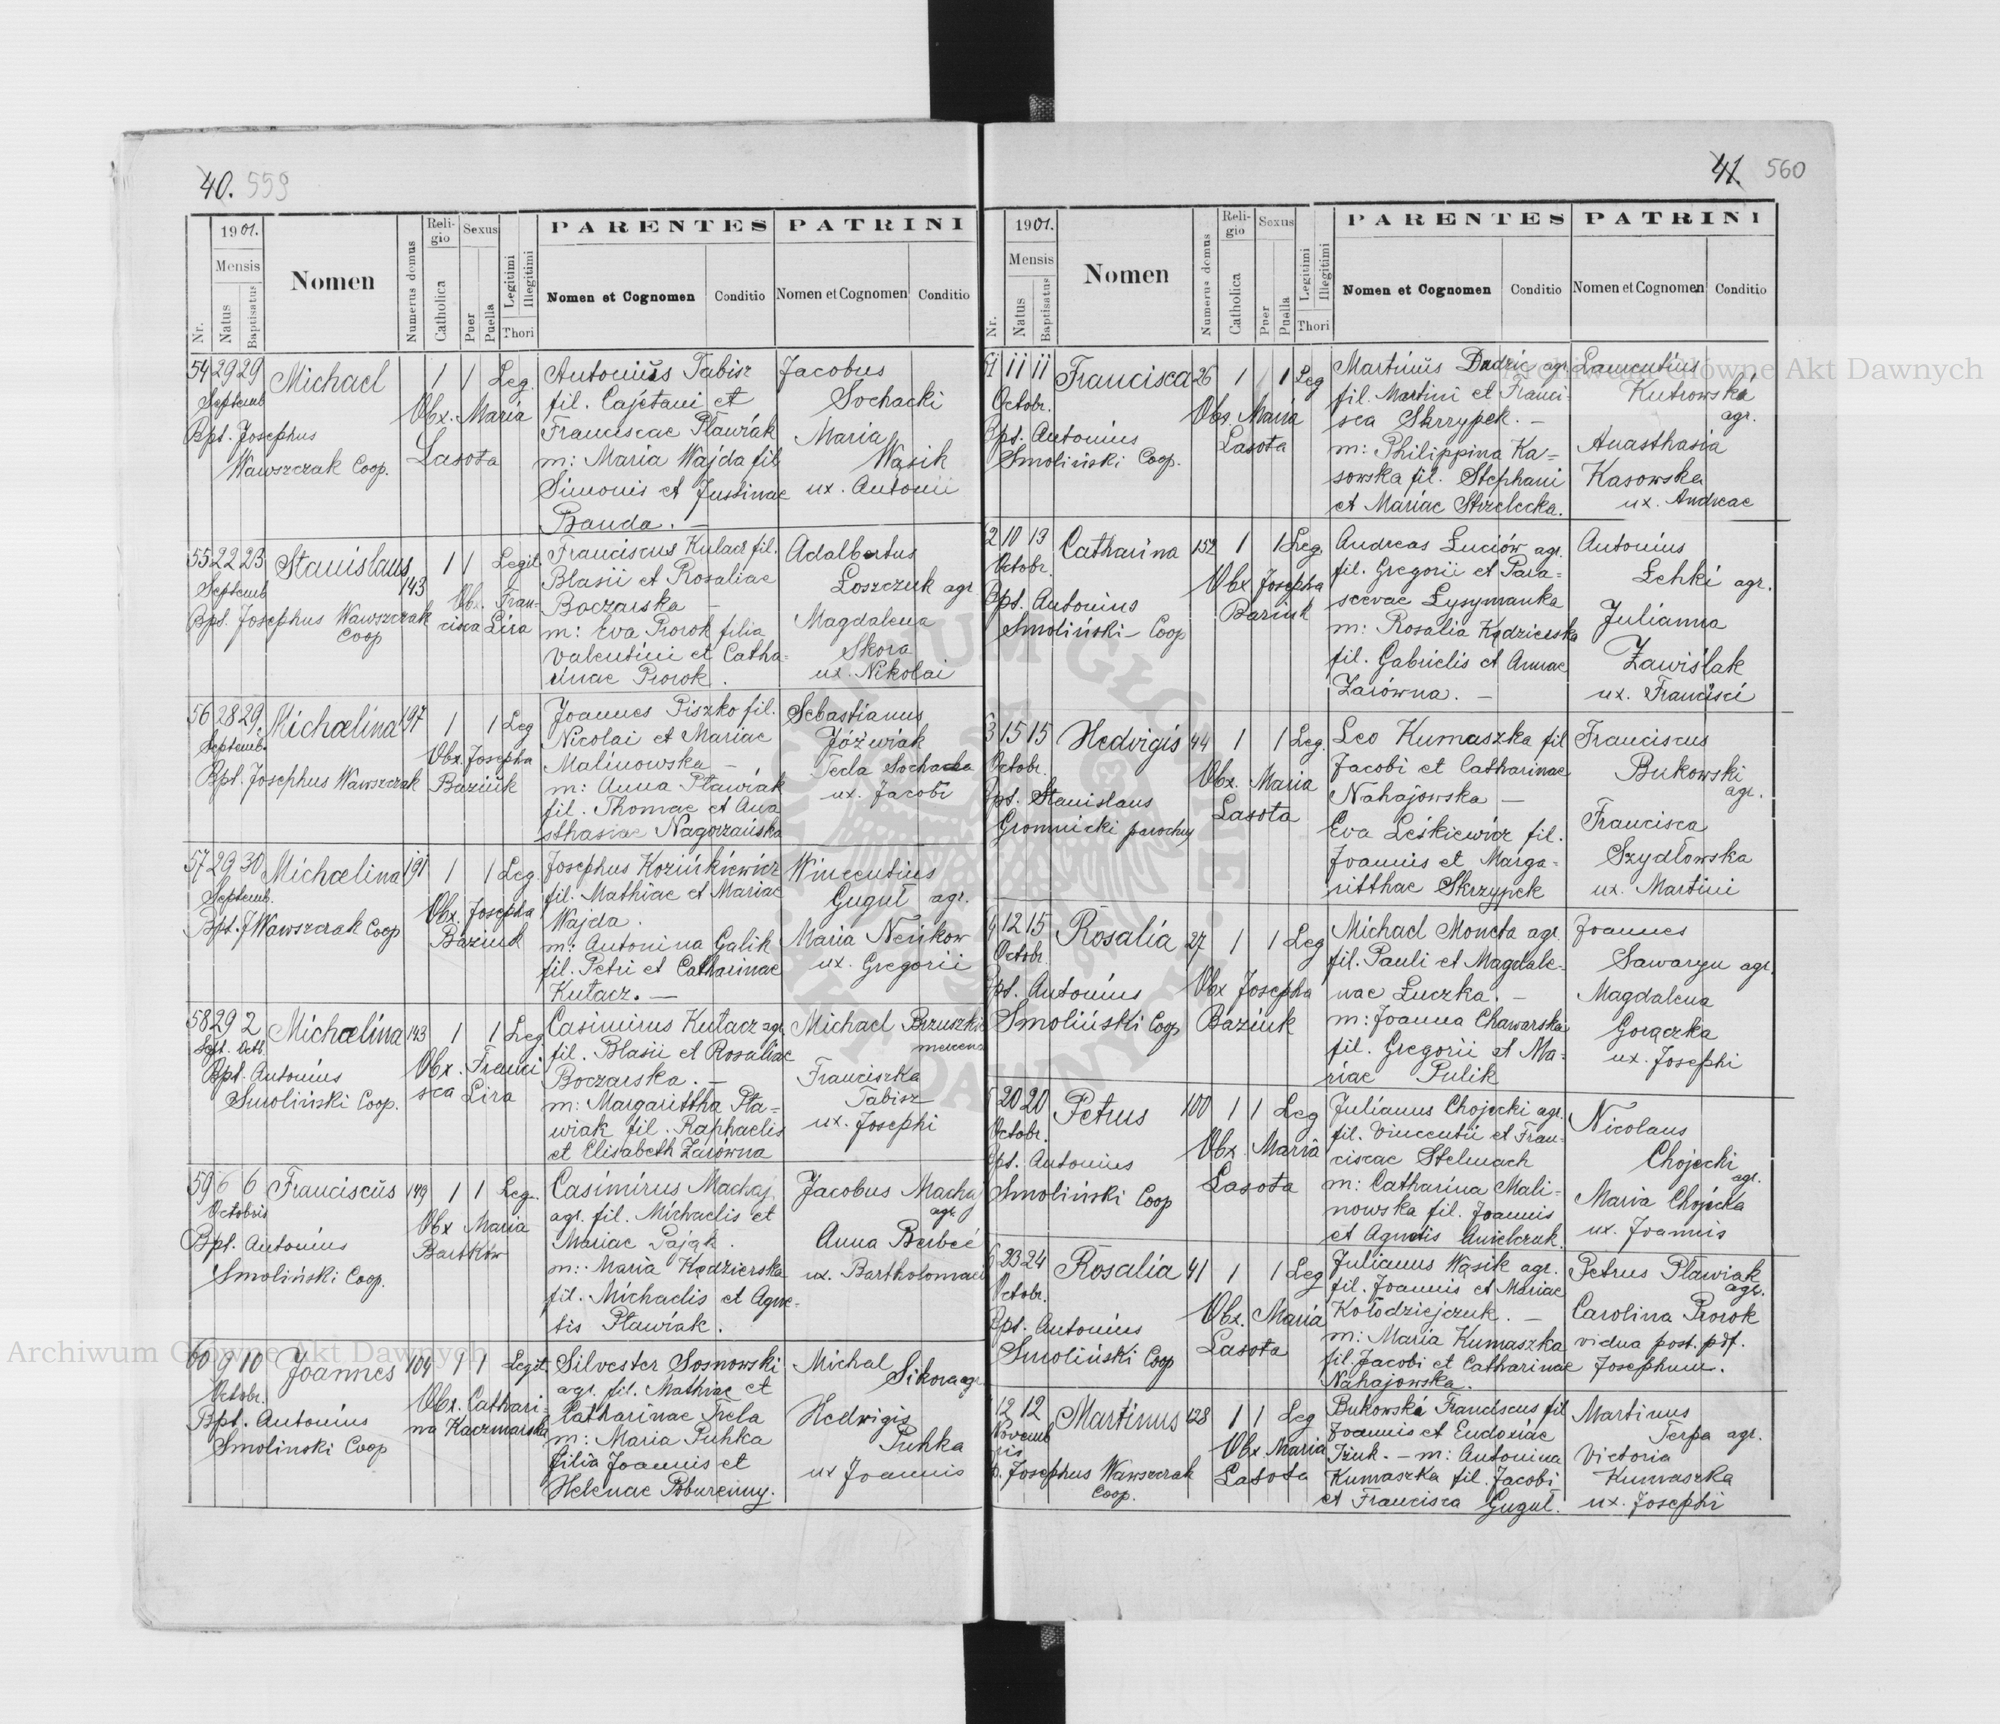 40. 559
1901.
Mensis
Nr.
Natus
Baptisatus
Nomen
Numerus domus
Religio
Catholica
Sexus
Puer
Puella
Legitimi
Illegitimi
Thori
PARENTES
Nomen et Cognomen
Conditio
PATRINI
Nomen et Cognomen
Conditio
54 29 29 Michael 1 1 Leg. Antonius Tabisz Jacobus
Septemb Obx. Maria fil. Cajetani et Sochacki
Bpt. Josephus Lasota Franciscae Pławiak Maria
Wawszczak Coop. m: Maria Wajda fil. Wąsik
Simonis et Justinae ux. Antonii
Banda. —
55 22 23 Stanislaus 143 1 1 Legit. Franciscus Kułacz fil. Adalbertus
Septemb Obx. Fran- Blasii et Rosaliae Łoszczuk agr
Bpt. Josephus Wawszczak cisca Lira Boczarska — Magdalena
Coop m: Eva Prorok filia Skora
Valentini et Catha- ux. Nikolai
rinae Prorok.
56 28 29 Michælina 197 1 1 Leg Joannes Piszko fil. Sebastianus
Septemb. Obx. Josepha Nicolai et Mariae Józwiak
Bpt. Josephus Wawszczak Baziuk Malinowska — Tecla Sochacka
m: Anna Pławiak ux. Jacobi
fil. Thomae et Ana
sthasiae Nagórzańska
57 29 30 Michælina 191 1 1 Leg. Josephus Kozińkiewicz Wincentius
Septemb. Obx. Josepha fil. Mathiae et Mariae Guguł agr.
Bpt. J Wawszczak Coop Baziuk Wajda. Maria Neńkow
m: Antonina Galik ux. Gregorii
fil. Petri et Catharinae
Kułacz. —
58 29 2 Michælina 143 1 1 Leg. Casimirus Kułacz agr. Michael Brzuszki
Sept. Octb. Obx. Franci fil. Blasii et Rosaliae
Bpt. Antonius sca Lira Boczarska. — Franciszka
Smoliński Coop. m: Margarittha Pła- Tabisz
wiak fil. Raphaelis ux. Josephi
et Elisabeth Zarówna
59 6 6 Franciscus 149 1 1 Leg. Casimirus Machaj Jacobus Machaj
Octobris Obx Maria agr. fil. Michaelis et agr
Bpt. Antonius Bartków Mariae Pająk. Anna Berbeć
Smoliński Coop. m: Maria Kędzierska ux. Bartholomaei
fil. Michaelis et Agne-
tis Pławiak.
60 9 10 Joannes 104 1 1 Legit. Silvester Sosnowski Michal
Octobr. Obx. Cathari- agr. fil. Mathiae et Sikora agr
Bpt. Antonius na Kaczmarska Catharinae Trela Hedwigis
Smolinski Coop m: Maria Puhka Puhka
filia Joannis et ux Joannis
Helenae Pobureńny.
41. 560
1901.
Mensis
Nr.
Natus
Baptisatus
Nomen
Numerus domus
Religio
Catholica
Sexus
Puer
Puella
Legitimi
Illegitimi
Thori
PARENTES
Nomen et Cognomen
Conditio
PATRINI
Nomen et Cognomen
Conditio
61 11 11 Francisca 26 1 1 Leg Martinus Dudzic agr Laurentius
Octobr. Obs. Maria fil. Martini et Franci- Kutrowski
Bpt. Antonius Lasota sca Skrzypek. — agr.
Smoliński Coop. m: Philippina Ka- Anasthasia
sowska fil. Stephani Kasowska
et Mariae Strzelecka. ux. Andreae
2 10 13 Catharina 152 1 1 Leg. Andreas Łuciów agr. Antonius
Octobr. Obx Josepha fil. Gregorii et Para- Łehki agr.
Bpt. Antonius Baziuk scevae Łysymanka Julianna
Smoliński— Coop m: Rosalia Kędzierska Zawiślak
fil. Gabrielis et Annae ux. Francisci
Zarówna. —
3 15 15 Hedvigis 44 1 1 Leg. Leo Kumaszka fil Franciscus
Octobr. Obx. Maria Jacobi et Catharinae Bukowski
Bpt. Stanislaus Lasota Nahajowska — agr.
Gromnicki parochus Eva Leśkiewicz fil. Francisca
Joannis et Marga- Szydłowska
ritthae Skrzypek ux. Martini
4 12 15 Rosalia 27 1 1 Leg Michael Moneta agr Joannes
Octobr. Obx Josepha fil. Pauli et Magdale- Sawaryn agr.
Bpt. Antonius Baziuk nae Łuczka. — Magdalena
Smoliński Coop m: Joanna Chawarska Gorączka
fil. Gregorii et Ma- ux. Josephi
riae Pulik
5 20 20 Petrus 100 1 1 Leg Julianus Chojecki agr. Nicolaus
Octobr. Obx. Maria fil. Vincentii et Fran- Chojecki
Bpt. Antonius Lasota ciscae Stelmach agr.
Smoliński Coop m: Catharina Mali- Maria Chojecka
nowska fil. Joannis ux. Joannis
et Agnetis Anielczuk.
6 23 24 Rosalia 41 1 1 Leg Julianus Wąsik agr. Petrus Pławiak
Octobr. Obx. Maria fil. Joannis et Mariae agr.
Bpt. Antonius Lasota Kołodziejczuk. — Carolina Prorok
Smoliński Coop m: Maria Kumaszka vidua post. pdf.
fil. Jacobi et Catharinae Josephum.
Nahajowska.
12 12 Martinus 128 1 1 Leg Bukowski Franciscus fil Martinus
Novemb Obx Maria Joannis et Eudoxiae Terpa agr.
ris Lasota — m: Antonina Victoria
Josephus Wawszczak Kumaszka fil. Jacobi Kumaszka
Coop. et Francisca Guguł. ux. Josephi
Archiwum Główne Akt Dawnych
Archiwum Główne Akt Dawnych
ARCHIWUM GŁÓWNE AKT DAWNYCH